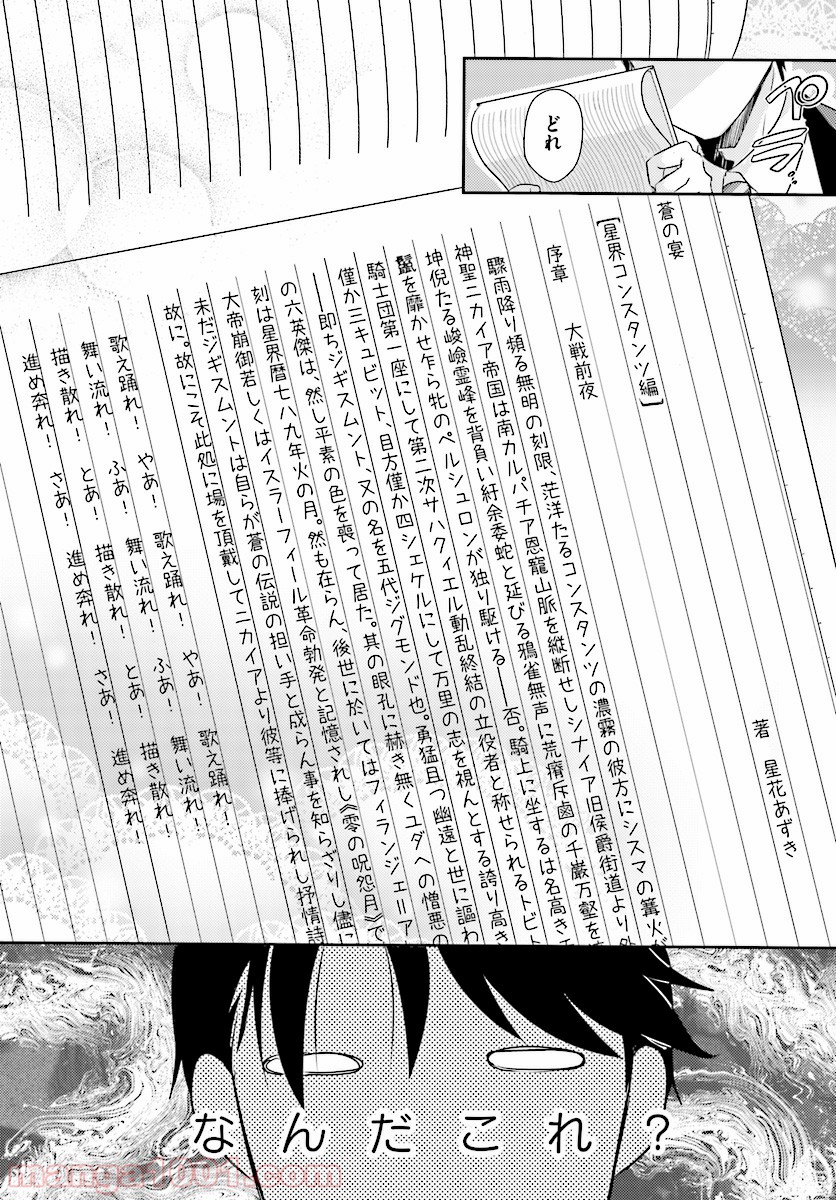 ペラ
どれ
蒼の宴
【星界コンスタンツ編】
著 星花あずき
序章 大戦前夜
驟雨降り頻る無明の刻限、茫洋たるコンスタンツの濃霧の彼方にシスマの篝火が
神聖ニカイア帝国は南カルパチア恩寵山脈を縦断せしシナイア旧侯爵街道より外
坤倪たる峻嶮霊峰を背負い紆余委蛇と延びる鴉雀無声に荒瘠斥鹵の千巌万壑を
鬣を靡かせ乍ら牝のペルシュロンが独り駆ける――否。騎上に坐するは名高き
騎士団第一座にして第二次サハクィエル動乱終結の立役者と称せられるトビト
僅か三キュビット、目方僅か四シェケルにして万里の志を視んとする誇り高き
――即ちジギスムント、又の名を五代ジグモンド也。勇猛且つ幽遠と世に謳わ
の六英傑は、然し平素の色を喪って居た。其の眼孔に赫き無くユダへの憎悪の
刻は星界暦七八九年火の月。然も在らん、後世に於いてはフィランジェリア
大帝崩御若しくはイスラーフィール革命勃発と記憶されし《零の呪怨月》で
未だジギスムントは自らが蒼の伝説の担い手と成らん事を知らざりし儘に
故に。故にこそ此処に場を頂戴してニカイアより彼等に捧げられし抒情詩
歌え踊れ! やあ! 歌え踊れ! やあ! 歌え踊れ!
舞い流れ! ふあ! 舞い流れ! ふあ! 舞い流れ!
描き散れ! とあ! 描き散れ! とあ! 描き散れ!
進め奔れ! さあ! 進め奔れ! さあ! 進め奔れ!
なんだこれ?